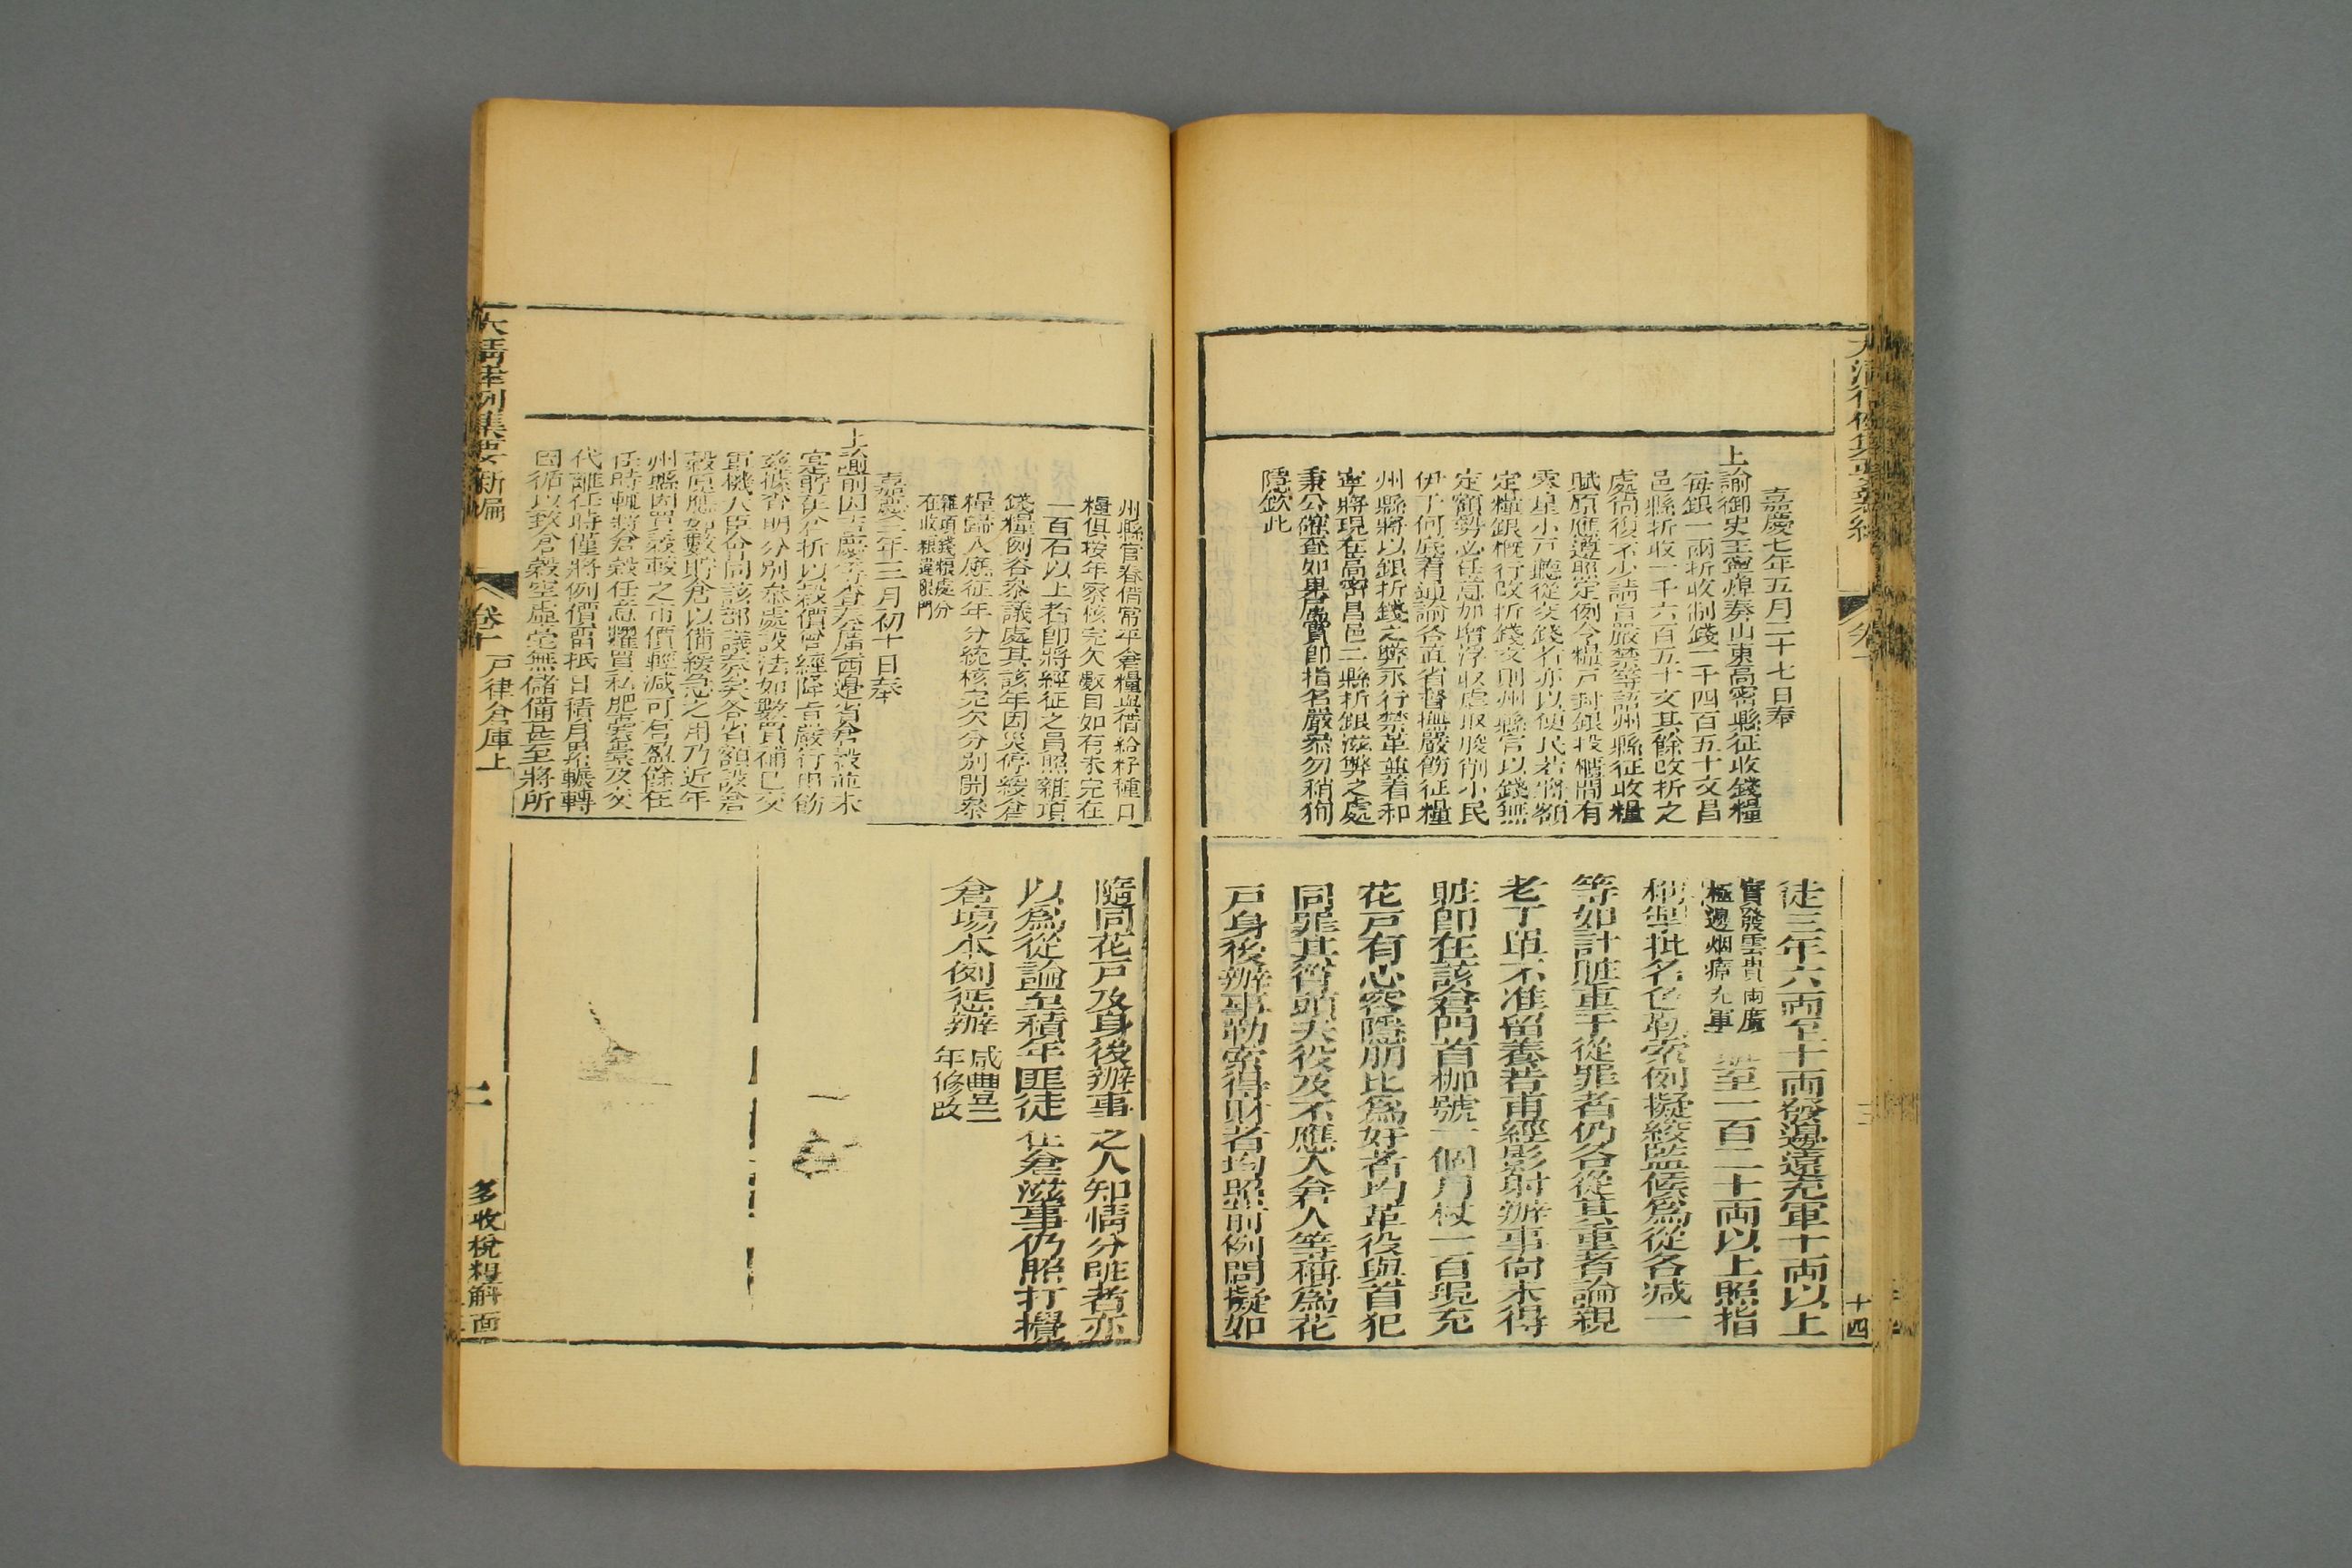 嘉慶七年五月二十七日奉
上諭御史王寧煒奏山東高密縣征收錢糧
每銀一兩折收制錢二千四百五十文昌
邑縣折收二千六百五十文其餘改折之
處尚復不少請旨嚴禁等語州縣征收糧
賦原應遵照定例令糧戶封銀投櫃間有
零星小戶聽從交錢者亦以便民若將額
定糧銀概行改折錢文則州縣官以錢無
定額勢必任意加增浮收虐取朘削小民
伊于何底着通諭各直省督撫嚴飭征糧
州縣將以銀折錢之弊永行禁革並着和
寧將現在高密昌邑二縣折銀滋弊之處
秉公確查如果屬實即指名嚴叅勿稍徇
隱欽此
徒三年六兩至十兩發邊遠充軍十兩以上
實發雲貴兩廣
極邊烟瘴充軍
至一百二十兩以上照指
稱掣批名色勒索例擬絞監候爲從各减一
等如計賍重于從罪者仍各從其重者論親
老丁單不准留養若甫經影射辦事尙未得
賍卽在該倉門首枷號一個月杖一百現充
花戶有心容隱朋比爲奸者均革役與首犯
同罪其管頭夫役及不應入倉人等稱爲花
戶身後辦事勒索得財者均照前例問擬如
十四
州縣官春借常平倉糧與借給籽種口
糧俱按年察核完欠數目如有未完在
一百石以上者卽將經征之員照雜項
錢糧例各叅議處其該年因災停緩倉
糧歸入應征年分統核完欠分別開叅
雜項錢糧處分
在收糧違限門
嘉慶三年三月初十日奉
上諭前因吉慶等奏廣西邊省倉穀並未
定前准折以穀價曾經降旨嚴行申飭
茲據查明分別叅處設法如數買補已交
軍機大臣會同該部議奏矣各省額設倉
穀原應如數貯倉以備緩急之用乃近年
州縣因買穀較之市價輕減可有盈餘在
任時輒將倉穀任意糶買私肥囊橐及交
代離任時僅將例價留抵日積月累輾轉
因循以致倉穀空虛毫無儲備甚至將所
隨同花戶及身後辦事之人知情分賍者亦
以爲從論至積年匪徒在倉滋事仍照打攪
倉塲本例懲辦
咸豐二
年修改
大清律例集要新編
卷十
戶律倉庫上
多收稅糧斛面